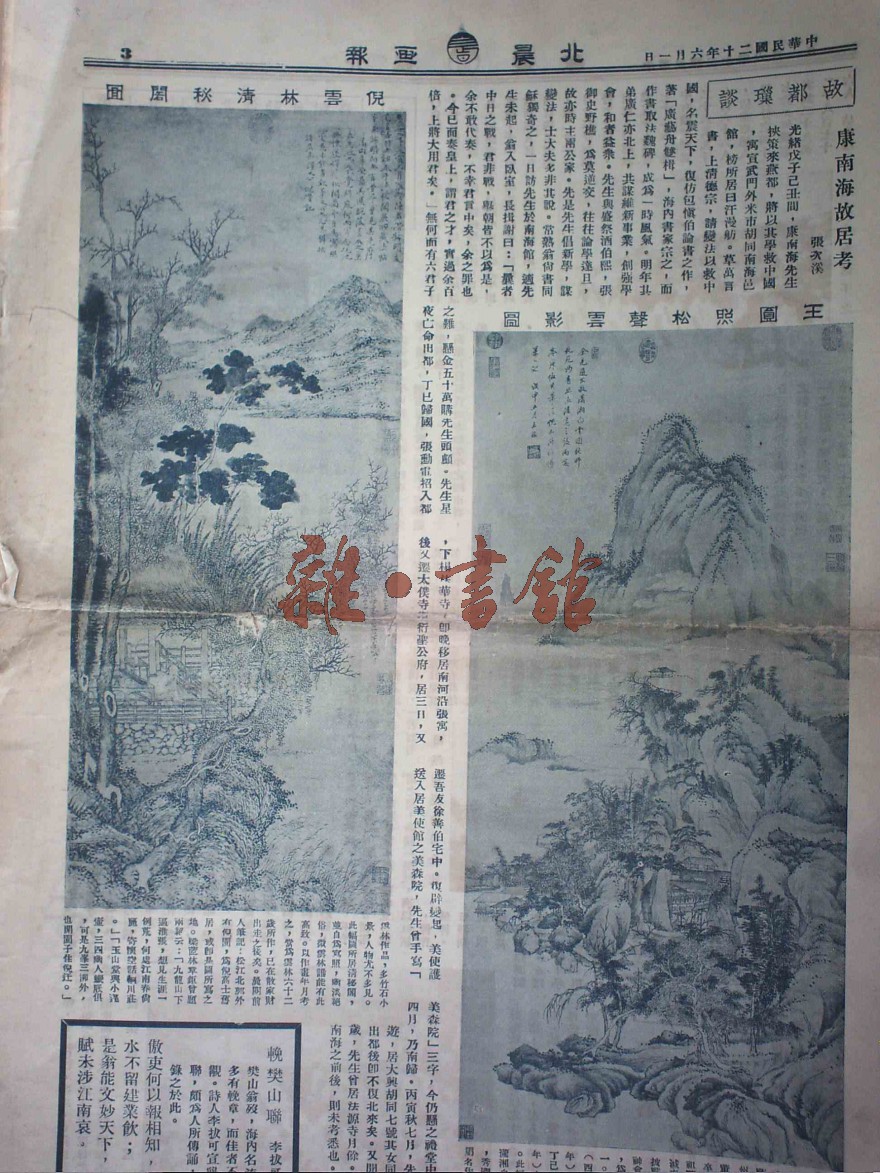 中華民國二十年六月一日
北晨畫報
3
故都瓊談
康南海故居考
張次溪
光緒戊子己丑間，康南海先生
挾策來燕都，將以其學救中國
，寓宣武門外米市胡同南海邑
館，榜所居曰汗漫舫。草萬言
書，上清德宗，請變法以救中
國，名震天下，復仿包愼伯論書之作，
著「廣藝舟雙楫」，海內書家宗之，而
作書取法魏碑，成爲一時風氣。明年其
弟廣仁亦北上，共謀維新事業，創強學
會，和者益衆。先生與盛祭酒伯熙，張
御史野樵，爲莫逆交，往往論學達旦，
故亦時主兩公家。先是先生倡新學，謀
變法，士大夫多非其說。常熟翁尙書同
龢獨奇之，一日訪先生於南海館，適先
生未起，翁入臥室，長揖謝曰：「曩者
中日之戰，君非戰，舉朝皆不以爲是，
余不敢代奏，不幸君言中矣，余之罪也
。今已面奏皇上，謂君之才，實過余百
倍，上將大用君矣。」無何而有六君子
之難，懸金五十萬購先生頭顱。先生星
夜亡命出都，丁巳歸國，張勳電招入都
，下榻法華寺，卽晚移居南河沿張寓，
後又遷太僕寺街衍聖公府，居三日，又
遷吾友徐善伯宅中。復辟變起，美使護
送入居美使館之美森院，先生曾手寫「
美森院」三字，今仍懸之禮堂中
四月，乃南歸。丙寅秋七月，先
遊，居大興胡同七號其女同
出都後卽不復北來矣。又聞
歲，先生曾居法源寺月餘。
南海之前後，則未考悉也。
王圓照松聲雲影圖
倪雲林清秋閣圖
雲林作品，多竹石小
景，人物尤不多見。
此幅圖所居清秘閣，
高致。以作畫年月考
之，當爲雲林六十二
歲所作，已在散家財
出走之後矣。
輓樊山聯
李拔可
樊山翁歿，海內名流
多有輓章，而佳者不
觀。詩人李拔可宣龔
聯，頗爲人所傳誦，
錄之於此。
傲吏何以報相知，
水不留建業飲；
是翁能文妙天下，
賦未涉江南哀。
雜·書館